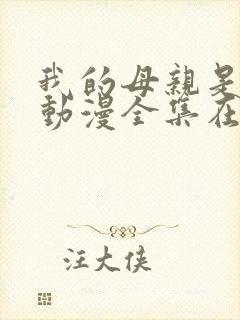 我的母親是
動漫全集在
汪大侠